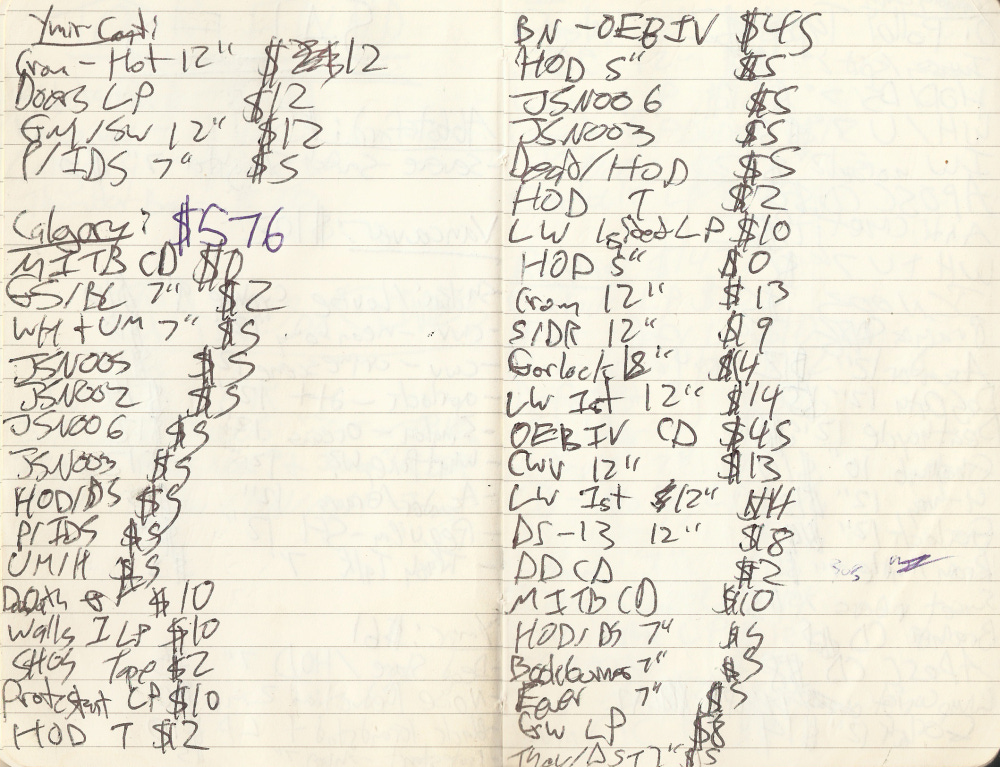 Ymir Cont:
Gram - Hot 12" $12
Doors LP $12
GM/SW 12" $12
P/IDS 7" $5
Calgary: $576
MITB CD $10
GS/BC 7" $2
WH + UM 7" $5
JSN005 $5
JSN002 $5
JSN006 $5
JSN003 $5
HOD/DS $5
P/IDS $5
UM/H $5
$10
Walls I LP $10
SHOS Tape $2
Protestant LP $10
HOD T $2
BN - OEBIV $45
HOD 5" $5
JSN006 $5
JSN003 $5
Dead/HOD $5
HOD T $2
LW LP $10
HOD 5" $0
Gram 12" $13
S/DR 12" $9
Gorlock 8" $4
LW Ist 12" $14
OEBIV CD $45
CWV 12" $13
LW Ist 12"
DS-13 12" $18
DD CD $2
MITB CD $10
HOD/DS 7" $5
7" $5
7" $5
GW LP $8
7" $5